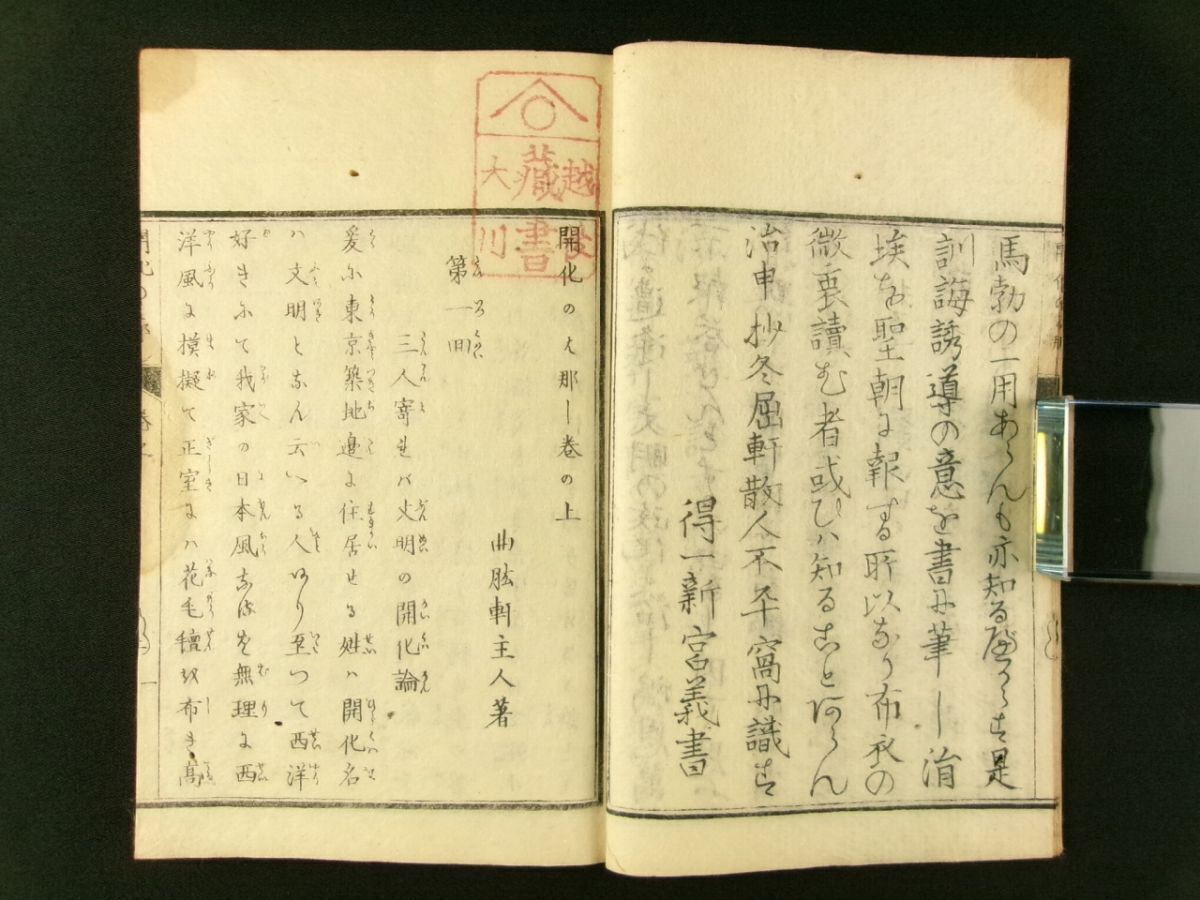 馬勃の一用あらんも亦知る可らす是
訓誨誘導の意を書に筆し涓
埃を聖朝に報する所以なり布衣の
微衷讀む者或ひハ知ることあらん
治申抄冬屈軒散人不平窩に識す
得一新宮義書
越
藏書
大川
開化のは那し巻の上
曲肱軒主人著
第一回
三人寄れバ文明の開化論
爰に東京築地邊に住居せる姓ハ開化名
ハ文明となん云いへる人あり至つて西洋
好きにて我家の日本風なるを無理に西
洋風に模擬て正室にハ花毛氈を布き高